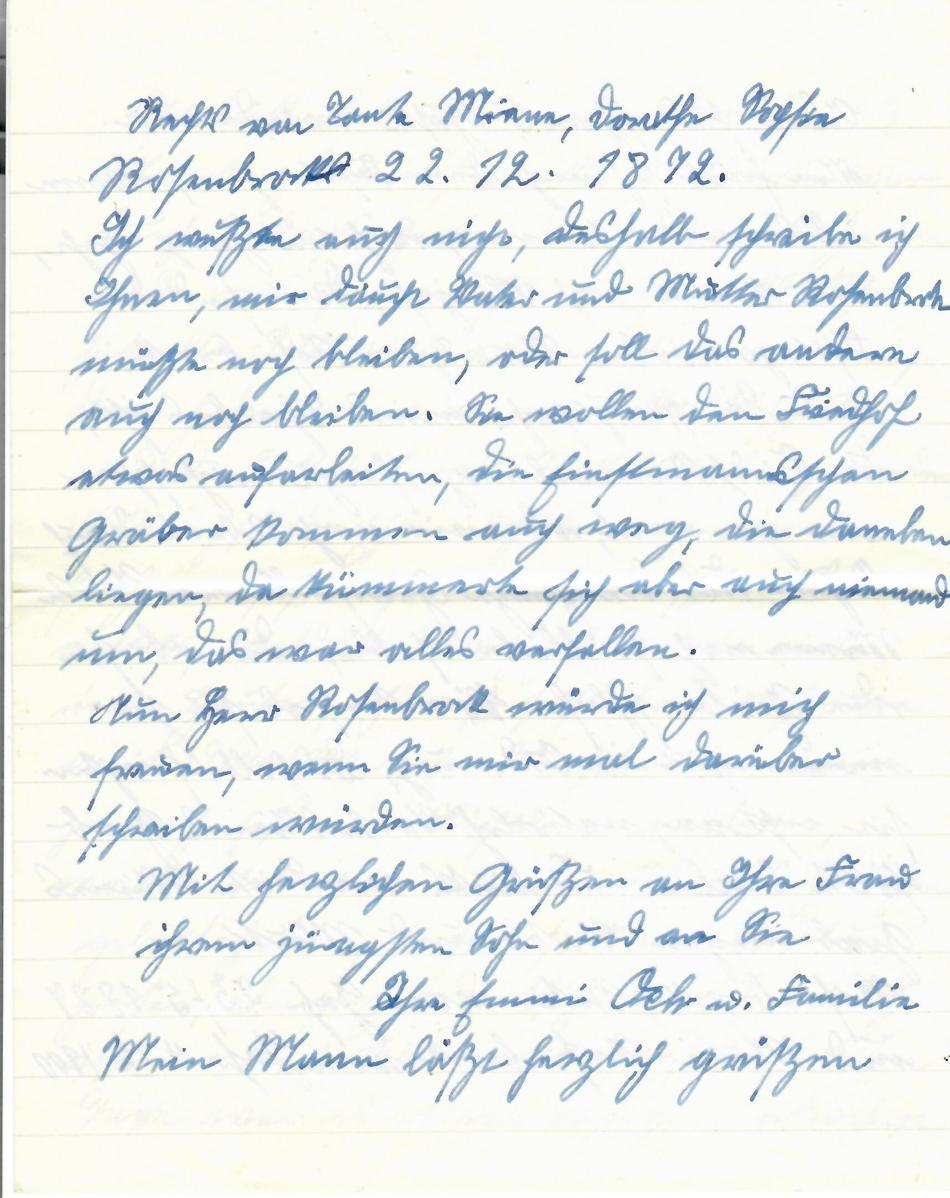 Rechts von Tante Miene, Dorothe Sophie
Rosenbrock 22. 12. 1872.
Ich wußte auch nicht, deshalb schreibe ich
Ihnen, mir däucht Vater und Mutter Rosenbrock
müßte noch bleiben, oder soll das andere
auch noch bleiben. Sie wollen den Friedhof
etwas aufarbeiten, die Einstmannsschen
Gräber kommen auch weg, die daneben
liegen, da kümmerte sich aber auch niemand
um, das war alles verfallen.
Nun Herr Rosenbrock würde ich mich
freuen, wenn Sie mir mal darüber
schreiben würden.
Mit herzlichen Grüßen an Ihre Frau
ihrem jüngsten Sohn und an Sie
Ihre Emmi u. Familie
Mein Mann läßt herzlich grüßen